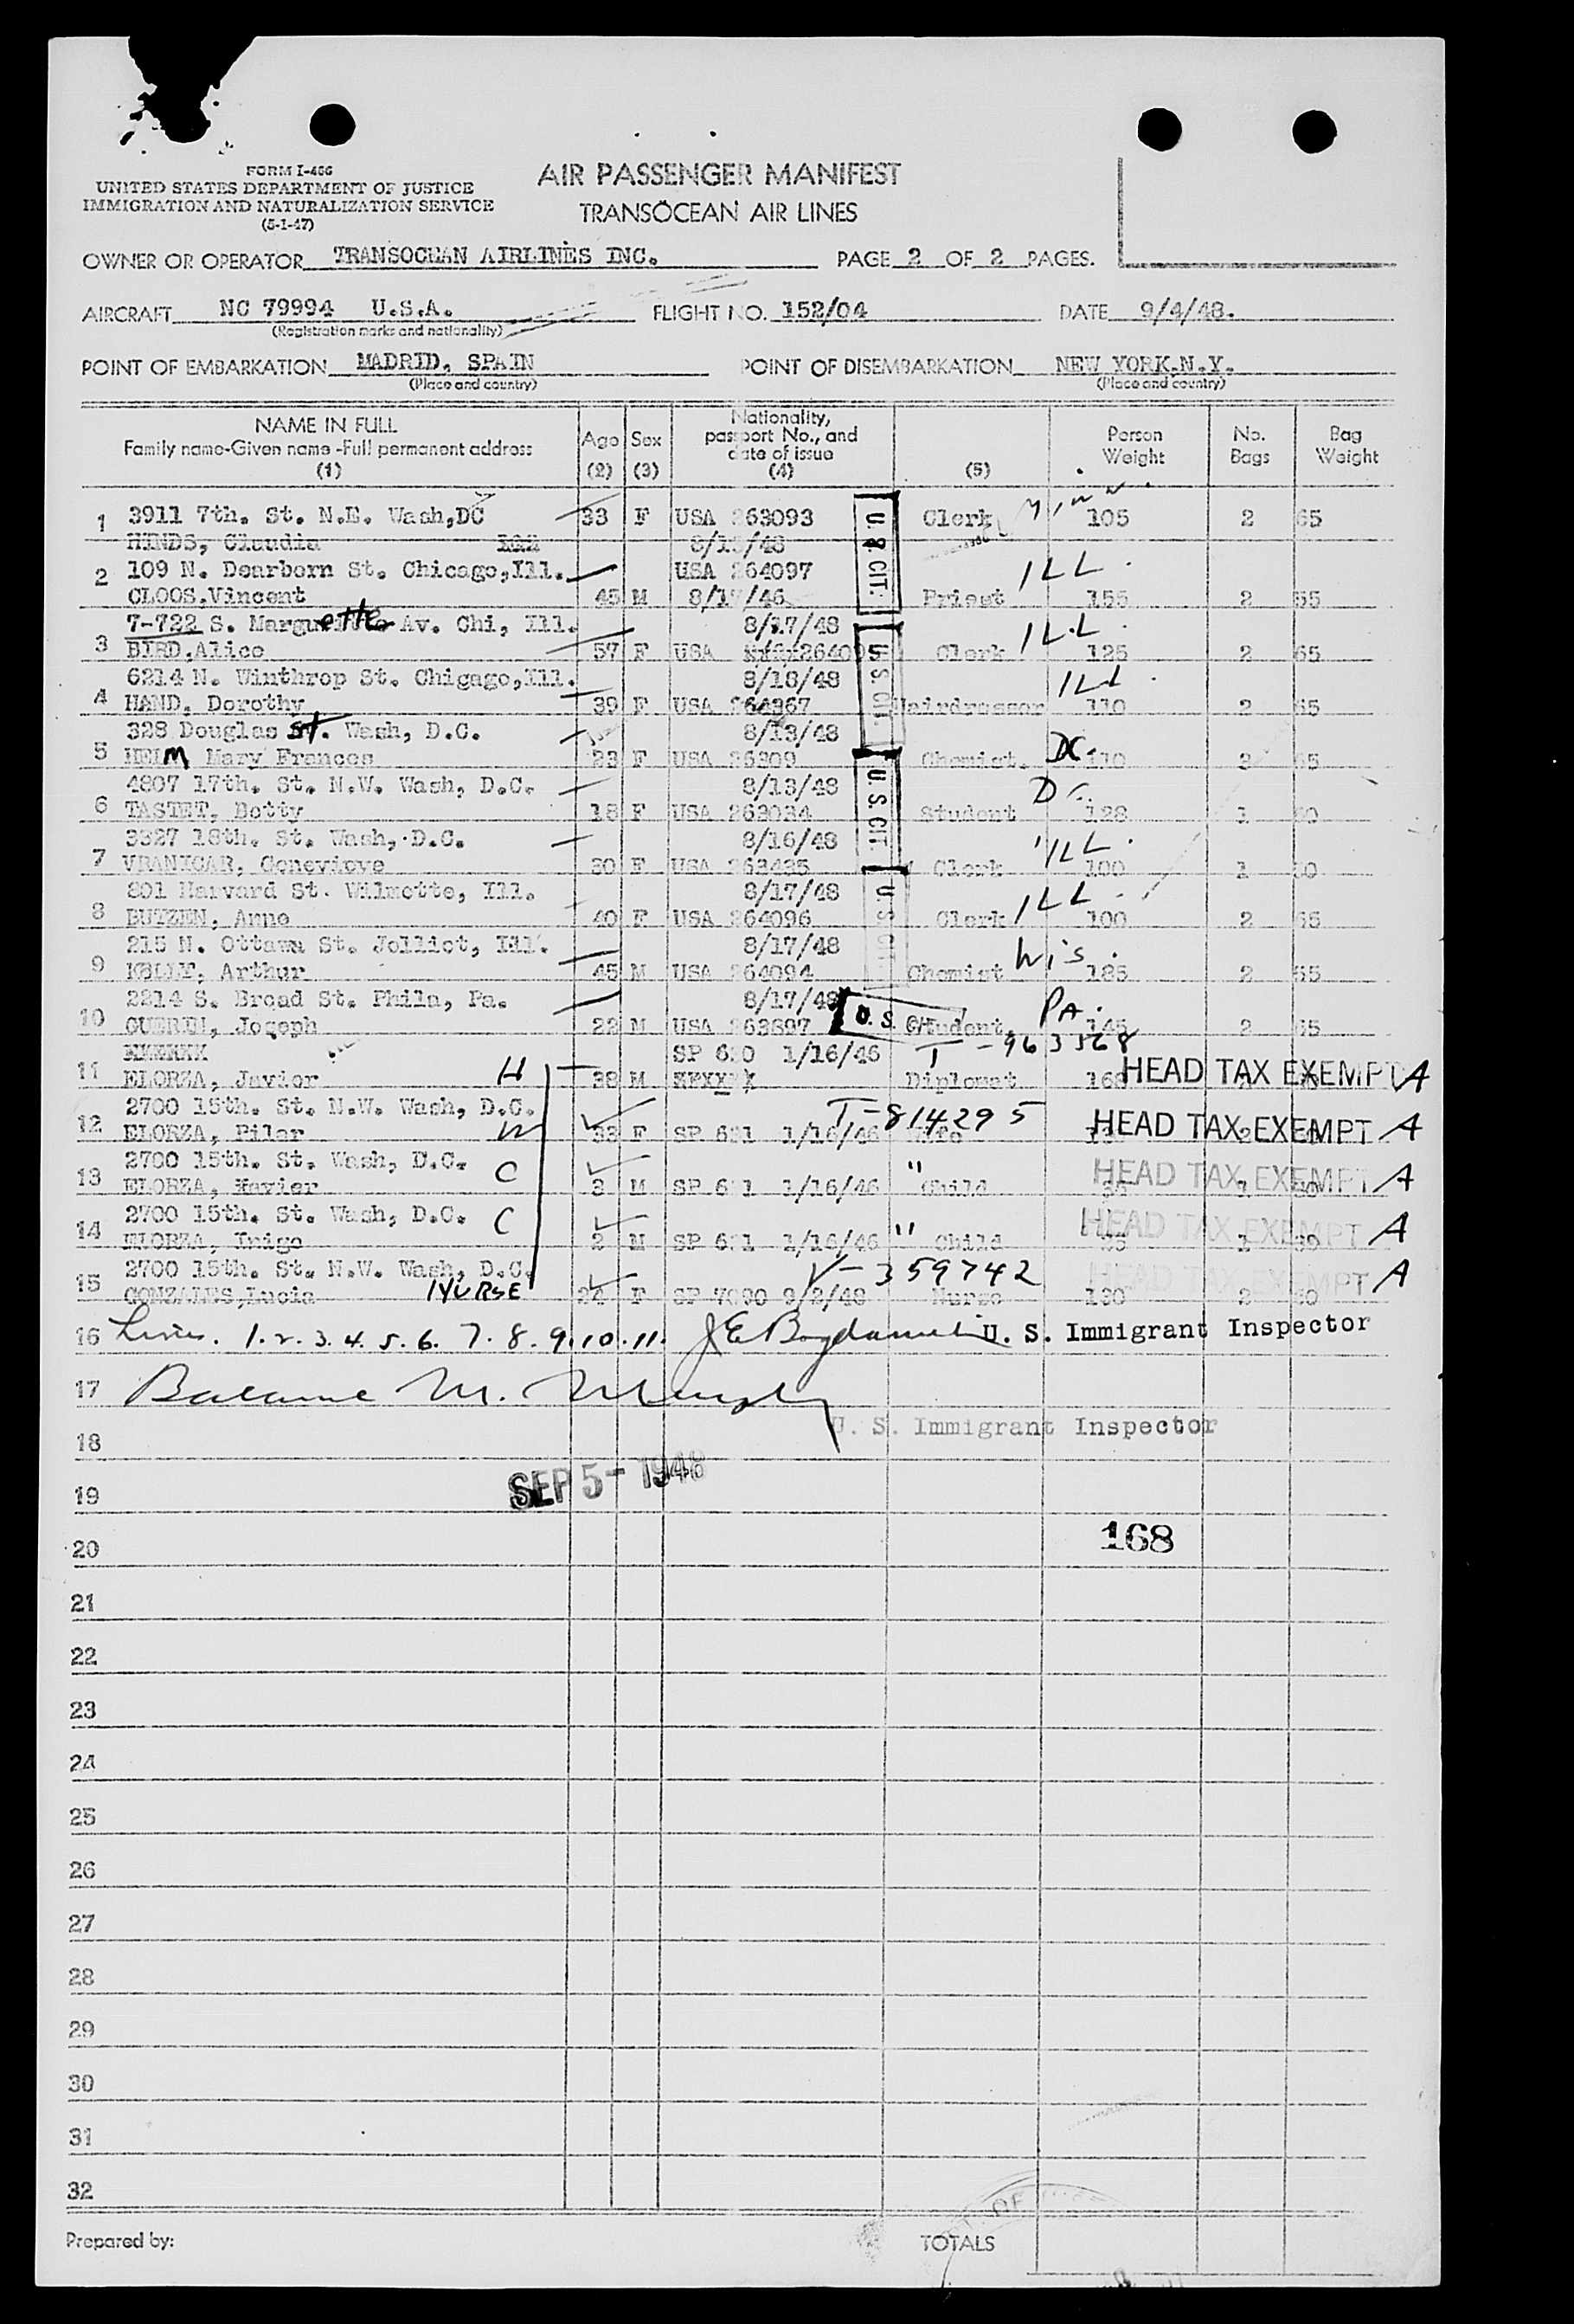 FORM I-466
UNITED STATES DEPARTMENT OF JUSTICE
IMMIGRATION AND NATURALIZATION SERVICE
(5-1-47)
AIR PASSENGER MANIFEST
TRANSOCEAN AIR LINES
OWNER OR OPERATOR TRANSOCEAN AIRLINES INC. PAGE 2 OF 2 PAGES.
AIRCRAFT NC 79994 U.S.A. FLIGHT NO. 152/04 DATE 9/4/48.
(Registration marks and nationality)
POINT OF EMBARKATION MADRID, SPAIN POINT OF DISEMBARKATION NEW YORK.N.Y.
(Place and country) (Place and country)
NAME IN FULL Age Sex Nationality, Person No. Bag
Family name-Given name-Full permanent address passport No., and Weight Bags Weight
date of issue
(1) (2) (3) (4) (5)
1 3911 7th. St. N.E. Wash,DC 33 F USA 263093 Clerk 105 2 65
HINDS, Claudia 8/13/48
2 109 N. Dearborn St. Chicago,Ill. USA 264097 ILL.
CLOOS,Vincent 45 M 8/17/46 Priest 155 2 55
7-722 S. Marguette Av. Chi, Ill. 8/17/48 ILL.
3 BIRD,Alice 57 F USA 264095 Clerk 125 2 65
6214 N. Winthrop St. Chigago,Ill. 8/18/48 ILL.
4 HAND, Dorothy 39 F USA 264367 Hairdresser 110 2 65
328 Douglas St. Wash, D.C. 8/13/48 DC.
5 HELM Mary Frances 23 F USA 26309 Chemist. 110 2 65
4807 17th. St. N.W. Wash, D.C. 8/13/48 DC.
6 TASTET, Betty 18 F USA 263034 Student 128 1
3327 18th. St. Wash, D.C. 8/16/48 ILL.
7 VRANICAR, Genevieve 30 F USA 263485 Clerk 100 1
801 Harvard St. Wilmette, Ill. 8/17/48 ILL
8 BUTZEN, Anne 40 F USA 264096 Clerk 100 2 65
215 N. Ottawa St. Jolliet, Ill. 8/17/48 Wis.
9 KELLY, Arthur 45 M USA 264094 Chemist 185 2 55
2214 S. Broad St. Phila, Pa. 8/17/48 PA.
10 GUERIN, Joseph 22 M USA 263897 Student, 145 2 65
U. S. CIT.
U. S. CIT.
U. S. CIT.
U. S. CIT.
U. S. CIT.
SP 620 1/16/46 T-963368
11 ELORZA, Javier H 38 M Diplomat 168 HEAD TAX EXEMPT A
2700 15th. St. N.W. Wash, D.C. T-814295
12 ELORZA, Pilar W 33 F SP 621 1/16/46 Wife HEAD TAX EXEMPT A
2700 15th. St. Wash, D.C. "
13 ELORZA, Xavier C 3 M SP 621 1/16/46 Child HEAD TAX EXEMPT A
2700 15th. St. Wash, D.C. "
14 ELORZA, Inigo C 2 M SP 621 1/16/46 Child HEAD TAX EXEMPT A
2700 15th. St. N.W. Wash, D.C. V-359742
15 GONZALES,Lucia NURSE 24 F SP 7090 9/2/48 Nurse 130 2 HEAD TAX EXEMPT A
16 Lines. 1. 2. 3. 4. 5. 6. 7. 8. 9. 10. 11. U. S. Immigrant Inspector
17 M. Murphy
18 U. S. Immigrant Inspector
SEP 5- 1948
19
20 168
21
22
23
24
25
26
27
28
29
30
31
32
Prepared by: TOTALS